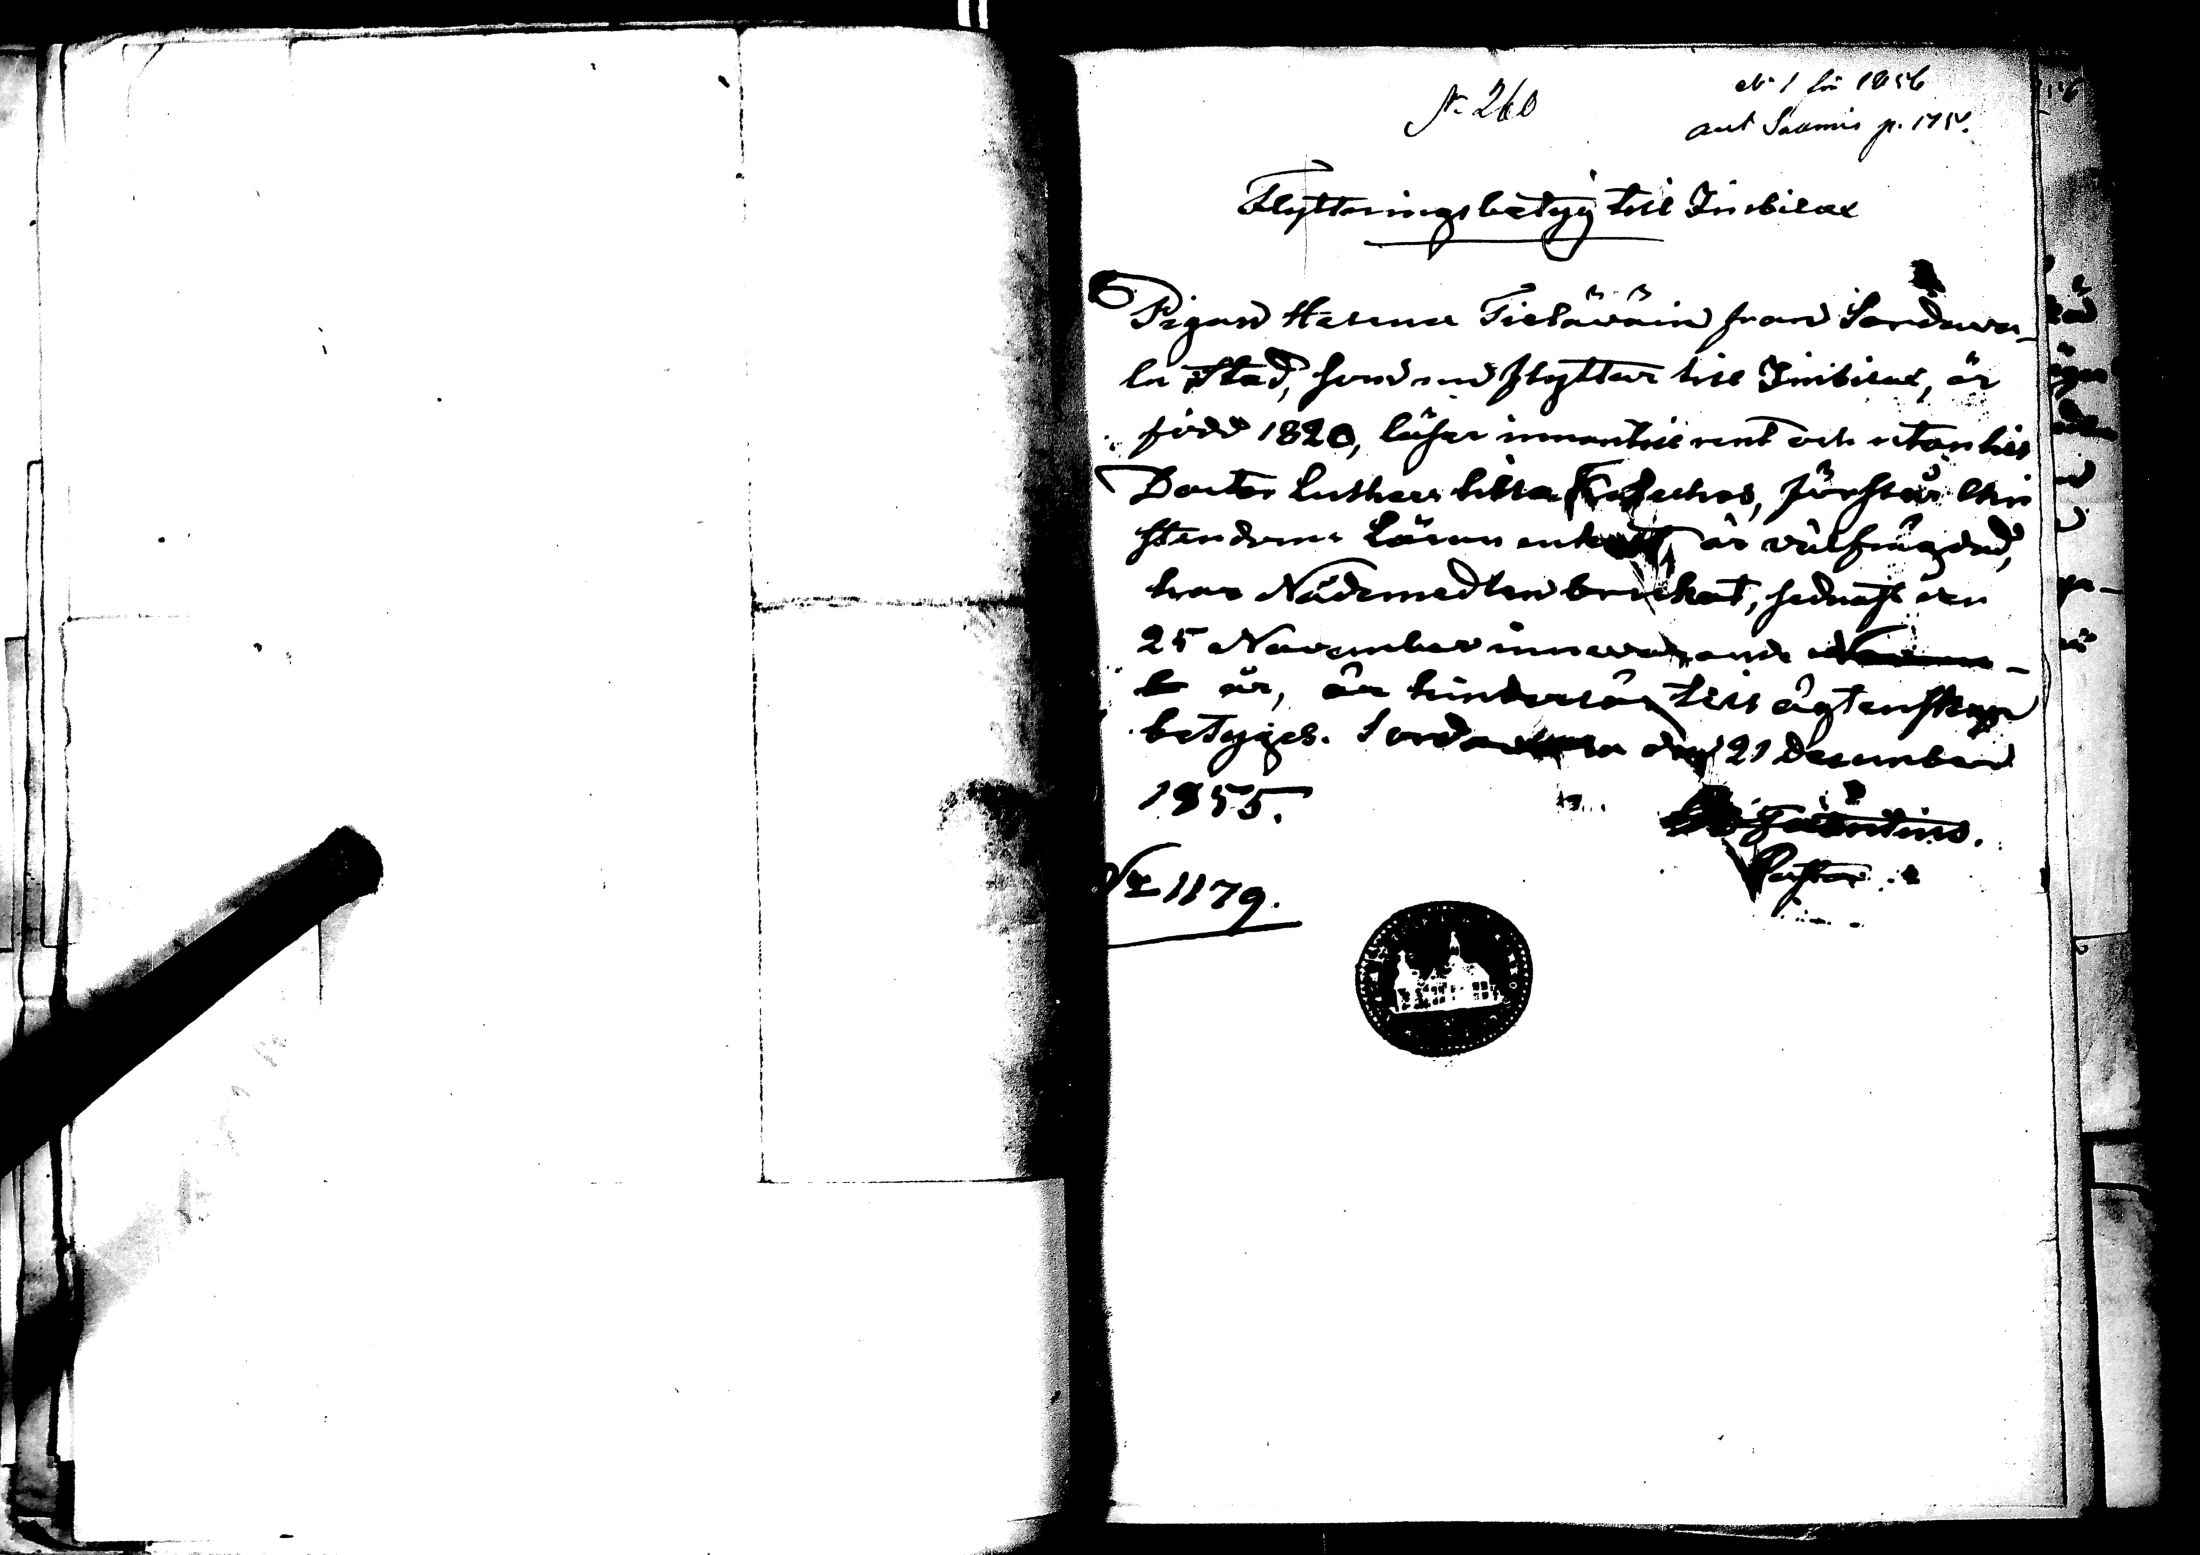 No 260
No 1 för 1856
ant Saamis p. 175.
Flyttningsbetyg till Imbilax
Pigan Helena Tielävain från Sordava-
la Stad, som nu flyttar till Imbilax, är
född 1820, läser innantill rent och utantill
Doctor Luthers lilla Cateches, förstår Chri
stendoms Läran enkelt, är välfrägdad,
har Nådemedlen brukat, sednast den
25 November innevarande
år, är hinderlös till ägtenskap
betyges. Sordavala den 21 December
1855.
Pastor
No 1179.